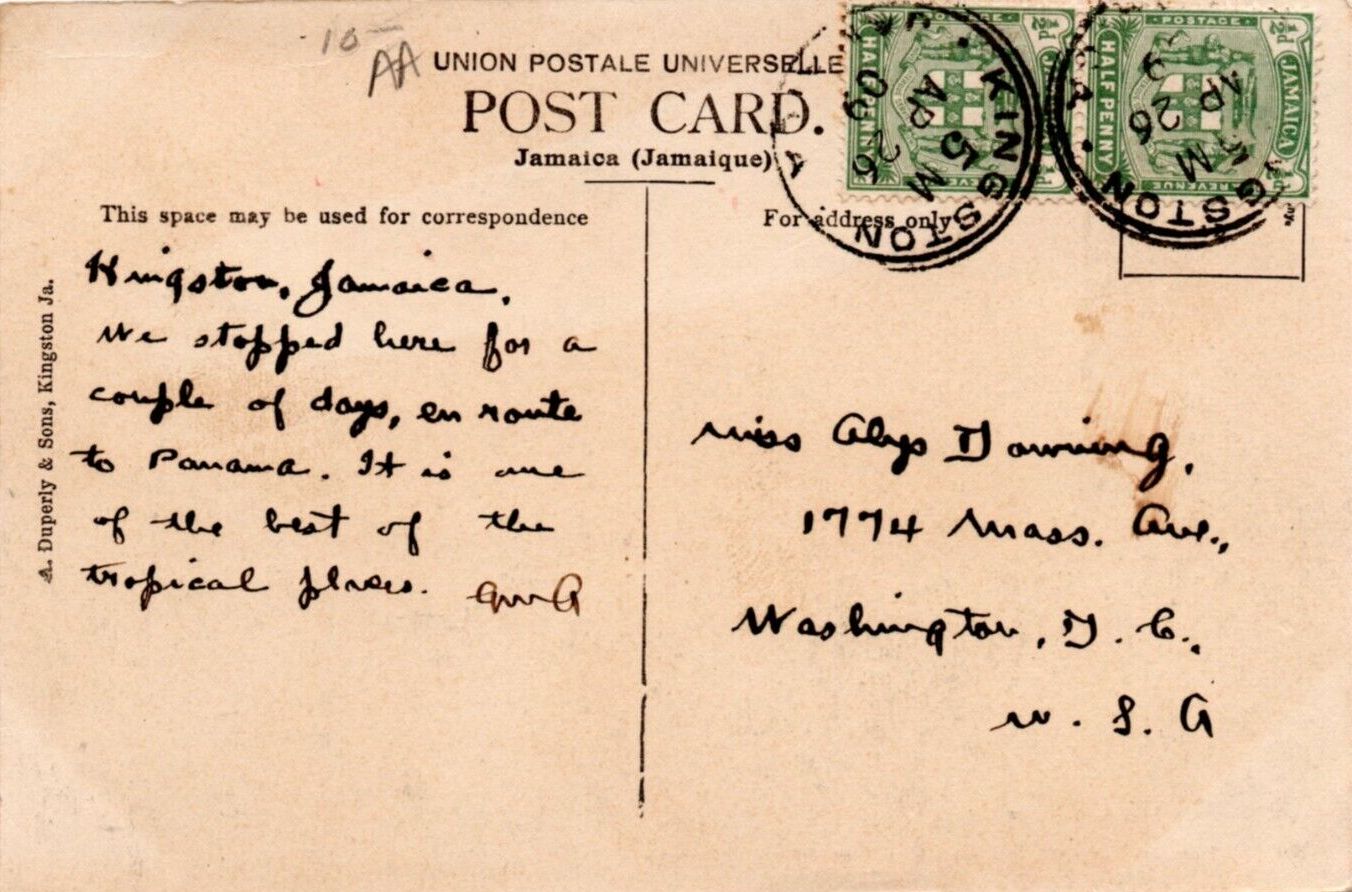 10 –
AA
UNION POSTALE UNIVERSELLE
POST CARD.
Jamaica (Jamaique)
This space may be used for correspondence
For address only
Kingston, Jamaica.
We stopped here for a
couple of days, en route
to Panama. It is one
of the best of the
tropical places. GWA
A. Duperly & Sons, Kingston Ja.
Miss Alys Downing,
1774 Mass. Ave.,
Washington, D. C.,
U. S. A
JAMAICA
HALF PENNY
½d
KINGSTON
5 M
AP 26
09
POSTAGE
JAMAICA
HALF PENNY
½d
REVENUE
KINGSTON
M
AP 26
9